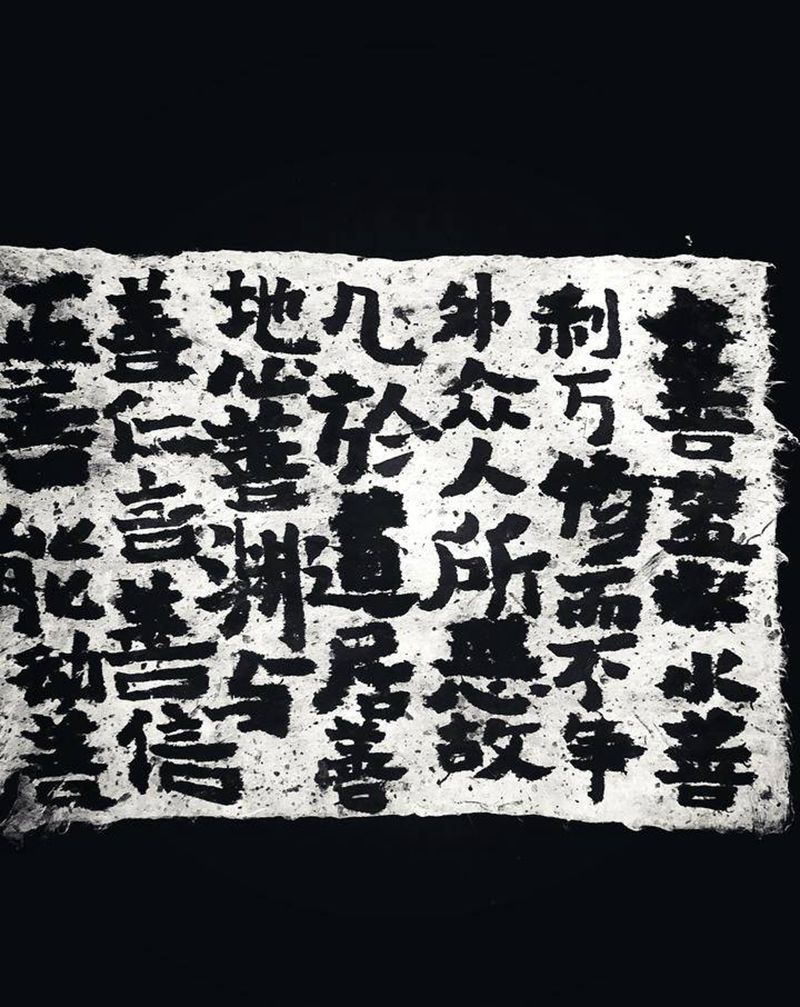 善水善
利万物而不争
众人所恶故
几於道居善
地心善渊与
善仁言善信
正善能动善